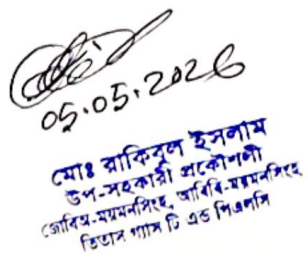 05.05.2026
মোঃ রাকিবুল ইসলাম
উপ-সহকারী প্রকৌশলী
জোবিঅ-ময়মনসিংহ, আবিবি-ময়মনসিংহ
তিতাস গ্যাস টি এন্ড ডি পিএলসি